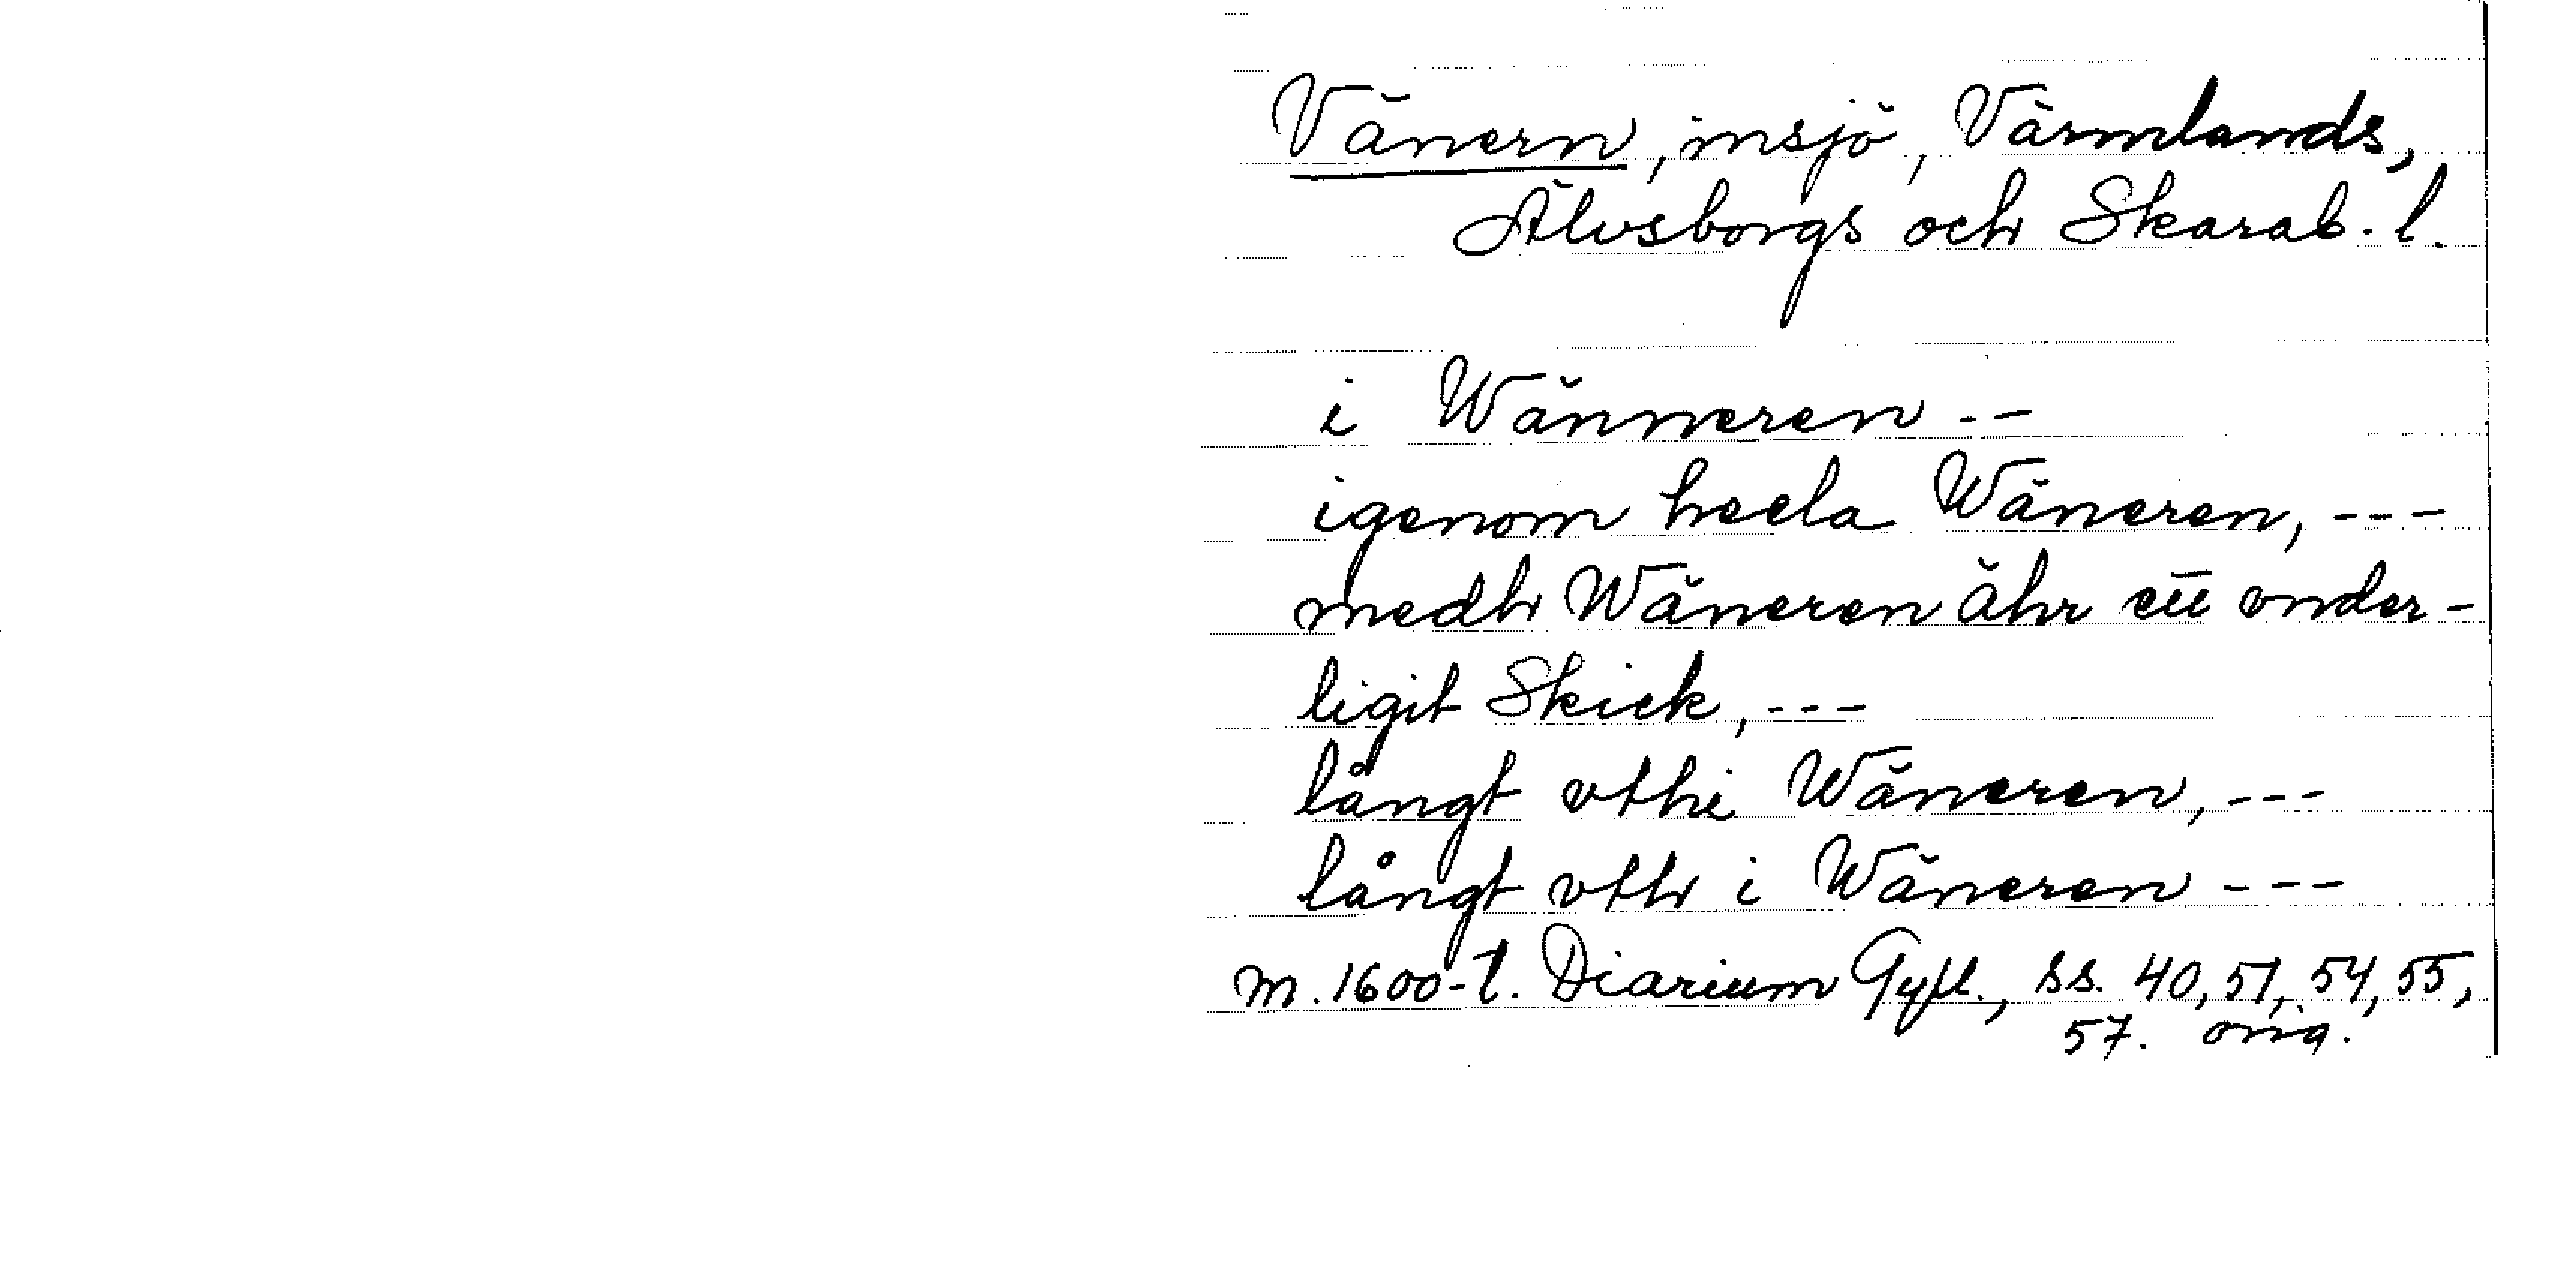 Vänern, insjö, Värmlands,
Älvsborgs och Skarab. l.
i Wänneren --
igenom heela Wäneren, ---
medh Wäneren ähr ett vnder-
ligit Skick, ---
långt vthi Wäneren, ---
långt vth i Wäneren ---
m. 1600-t. Diarium Gyll., ss. 40, 51, 54, 55,
57. orig.